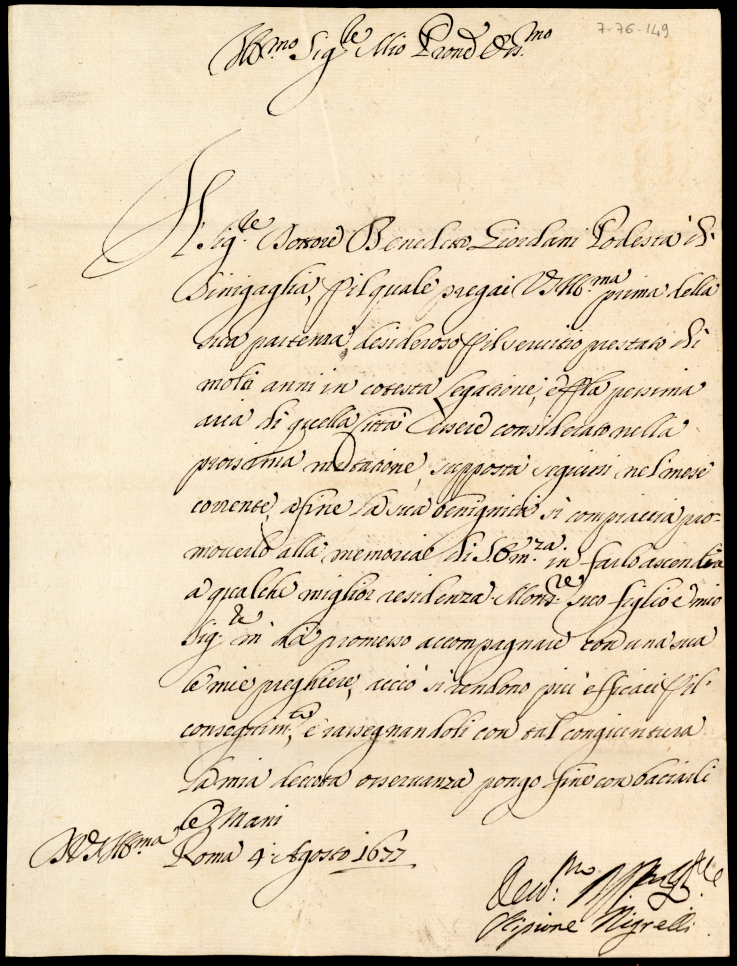 7-76-149
Ill.mo Sig.re Mio Prone Oss.mo
Il Sig.re Dottore Benedetto Giordani Podestà di
Sinigaglia, p il quale pregai V.S. Ill.ma prima della
sua partenza, desideroso p il servitio prestato di
molti anni in cotesta Legatione, e p la pessima
aria di quella Città essere considerato nella
prossima mutatione, supposta seguirsi nel mese
corrente, a fine la sua benignità si compiaccia pro-
moverlo alla memoria di S. Em.za in farlo ascendere
a qualche miglior residenza. Mons.re suo figlio e mio
Sig.re m'hà promesso accompagnare con una sua
le mie preghiere, acciò si rendono più efficaci p il
conseguim.to, e rassegnandoli con tal congiuntura
la mia devota osservanza pongo fine con baciarli
le Mani
Di V.S. Ill.ma Roma 4 Agosto 1677
Dev.mo
Scipione Nigrelli